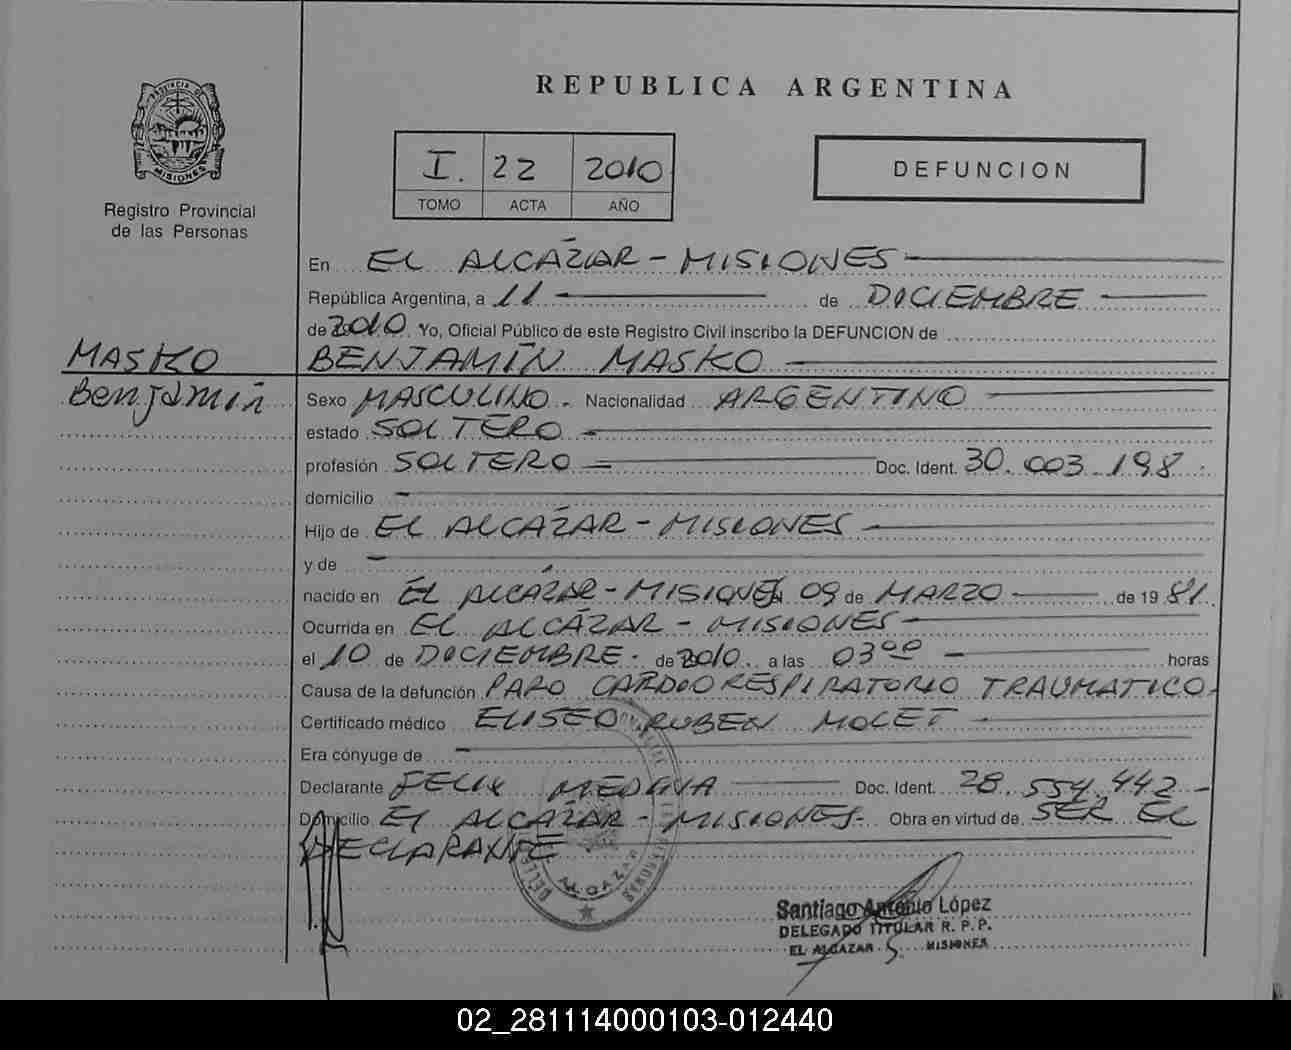 REPUBLICA ARGENTINA
PROVINCIA DE
MISIONES
Registro Provincial
de las Personas
I. 22 2010
TOMO ACTA AÑO
DEFUNCION
En EL ALCÁZAR - MISIONES
República Argentina, a 11 de DICIEMBRE
de 2010 Yo, Oficial Público de este Registro Civil inscribo la DEFUNCION de
MASKO
BENJAMÍN MASKO
Benjamín
Sexo MASCULINO. Nacionalidad ARGENTINO
estado SOLTERO
profesión SOLTERO Doc. Ident. 30.003.198
domicilio -
Hijo de EL ALCAZAR - MISIONES
y de -
nacido en EL ALCÁZAR - MISIONES 09 de MARZO de 1981
Ocurrida en EL ALCÁZAR - MISIONES
el 10 de DICIEMBRE. de 2010 a las 03 00 horas
Causa de la defunción PARO CARDIO RESPIRATORIO TRAUMATICO.
Certificado médico ELISEO RUBEN MOLET
Era cónyuge de -
Declarante FELIX MEDINA Doc. Ident. 28.554.442 -
Domicilio El ALCÁZAR - MISIONES. Obra en virtud de SER EL
DECLARANTE
ALCAZAR
Santiago Antonio López
DELEGADO TITULAR R. P. P.
EL ALCAZAR MISIONES
02_281114000103-012440